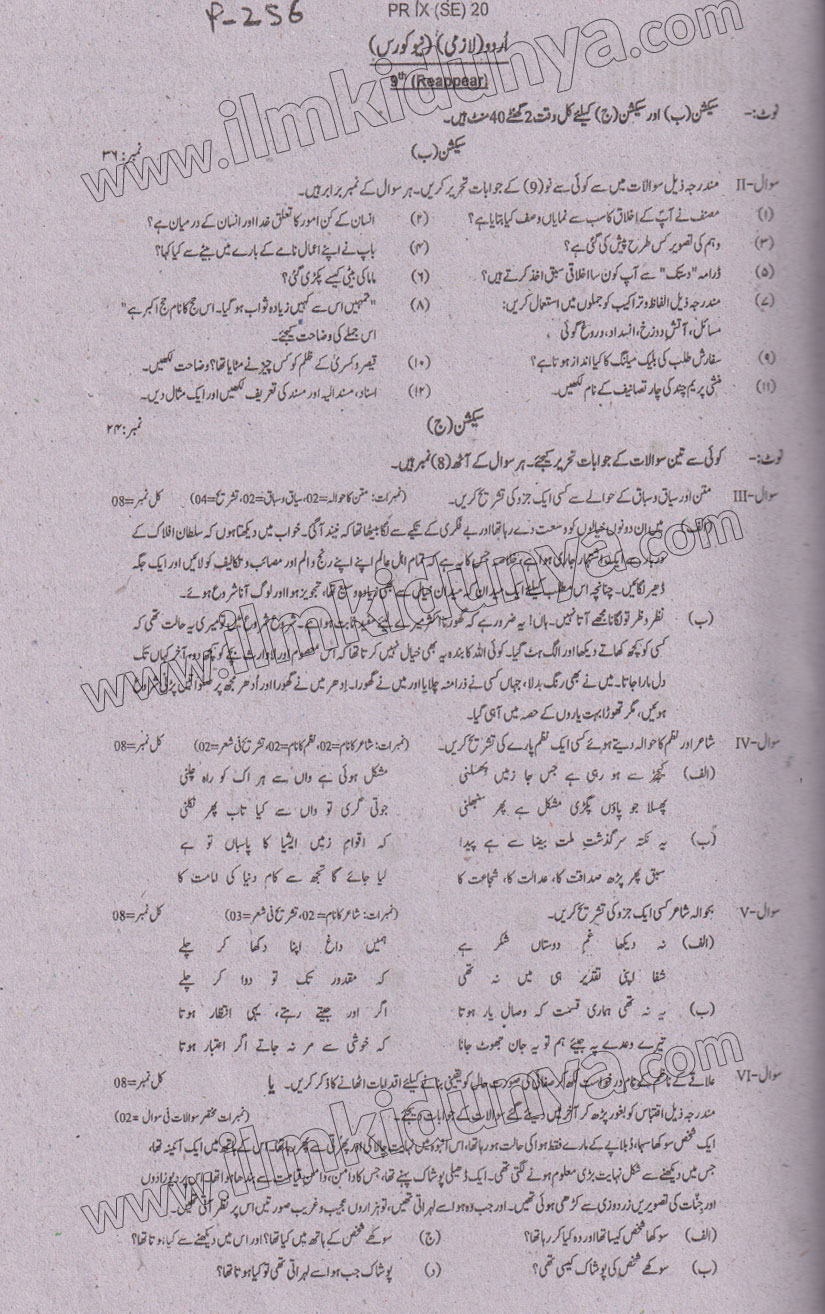 P-256
PR IX (SE) 20
اُردو (لازمی) (نیو کورس)
9th (Reappear)
نوٹ:- سیکشن (ب) اور سیکشن (ج) کیلئے کل وقت 2 گھنٹے 40 منٹ ہیں۔
سیکشن (ب) نمبر: ۳۶
سوال-II مندرجہ ذیل سوالات میں سے کوئی سے نو (9) کے جوابات تحریر کریں۔ ہر سوال کے نمبر برابر ہیں۔
(۱) مصنف نے آپؐ کے اخلاق کا سب سے نمایاں وصف کیا بتایا ہے؟ (۲) انسان کے کن امور کا تعلق خدا اور انسان کے درمیان ہے؟
(۳) وہم کی تصویر کس طرح پیش کی گئی ہے؟ (۴) باپ نے اپنے اعمال نامے کے بارے میں بیٹے سے کیا کہا؟
(۵) ڈرامہ "دستک" سے آپ کون سا اخلاقی سبق اخذ کرتے ہیں؟ (۶) ماما کی بیٹی کیسے پکڑی گئی؟
(۷) مندرجہ ذیل الفاظ و تراکیب کو جملوں میں استعمال کریں: (۸) "تمہیں اس سے کہیں زیادہ ثواب ہو گیا۔ اس حج کا نام حج اکبر ہے"
مسائل، آتشِ دوزخ، انسداد، دروغ گوئی اس جملے کی وضاحت کیجئے۔
(۹) سفارش طلب کی بلیک میلنگ کا کیا انداز ہوتا ہے؟ (۱۰) قیصر و کسریٰ کے ظلم کو کس چیز نے مٹایا تھا؟ وضاحت لکھیں۔
(۱۱) منشی پریم چند کی چار تصانیف کے نام لکھیں۔ (۱۲) اسناد، مسند الیہ اور مسند کی تعریف لکھیں اور ایک مثال دیں۔
سیکشن (ج) نمبر: ۲۴
نوٹ:- کوئی سے تین سوالات کے جوابات تحریر کیجئے۔ ہر سوال کے آٹھ (8) نمبر ہیں۔
سوال-III متن اور سیاق و سباق کے حوالے سے کسی ایک جزو کی تشریح کریں۔ (نمبرات: متن کا حوالہ=02، سیاق و سباق=02، تشریح=04) کل نمبر=08
(الف) میں ان دونوں خیالوں کو وسعت دے رہا تھا اور بے فکری کے تکیے سے لگا بیٹھا تھا کہ نیند آ گئی۔ خواب میں دیکھتا ہوں کہ سلطان افلاک کے
دربار سے ایک اشتہار جاری ہوا ہے، خلاصہ جس کا یہ ہے کہ تمام اہل عالم اپنے اپنے رنج و الم اور مصائب و تکالیف کو لائیں اور ایک جگہ
ڈھیر لگائیں۔ چنانچہ اس مطلب کیلئے ایک میدان کہ میدان خیال سے بھی زیادہ وسیع تھا، تجویز ہوا اور لوگ آنا شروع ہوئے۔
(ب) نظر وظر تو لگانا مجھے آتا نہیں۔ ہاں! یہ ضرور ہے کہ گھورنا اکثر میرے لئے مفید ثابت ہوا ہے۔ شروع شروع میں تو میری یہ حالت تھی کہ
کسی کو کچھ کھاتے دیکھا اور الگ ہٹ گیا۔ کوئی اللہ کا بندہ یہ بھی خیال نہیں کرتا تھا کہ اس معصوم اور لاوارث بچے کو کچھ دو، آخر کہاں تک
دل مارا جاتا۔ میں نے بھی رنگ بدلا، جہاں کسی نے ذرا منہ چلایا اور میں نے گھورا۔ ادھر میں نے گھورا اور اُدھر مجھ پر صلواتیں پڑنی شروع
ہوئیں، مگر تھوڑا بہت یاروں کے حصہ میں آ ہی گیا۔
سوال-IV شاعر اور نظم کا حوالہ دیتے ہوئے کسی ایک نظم پارے کی تشریح کریں۔ (نمبرات: شاعر کا نام=02، نظم کا نام=02، تشریح فی شعر=02) کل نمبر=08
(الف) کیچڑ سے ہو رہی ہے جس جا زمیں پھسلنی مشکل ہوئی ہے واں سے ہر اک کو راہ چلنی
پھسلا جو پاؤں پگڑی مشکل ہے پھر سنبھلنی جوتی گری تو واں سے کیا تاب پھر نکلنی
(ب) یہ نکتہ سرگذشتِ ملت بیضا سے ہے پیدا کہ اقوامِ زمیں ایشیا کا پاسباں تو ہے
سبق پھر پڑھ صداقت کا، عدالت کا، شجاعت کا لیا جائے گا تجھ سے کام دنیا کی امامت کا
سوال-V بحوالہ شاعر کسی ایک جزو کی تشریح کریں۔ (نمبرات: شاعر کا نام=02، تشریح فی شعر=03) کل نمبر=08
(الف) نہ دیکھا غمِ دوستاں شکر ہے ہمیں داغ اپنا دکھا کر چلے
شفا اپنی تقدیر ہی میں نہ تھی کہ مقدور تک تو دوا کر چلے
(ب) یہ نہ تھی ہماری قسمت کہ وصالِ یار ہوتا اگر اور جیتے رہتے، یہی انتظار ہوتا
تیرے وعدے پہ جیئے ہم تو یہ جان جھوٹ جانا کہ خوشی سے مر نہ جاتے اگر اعتبار ہوتا
سوال-VI علاقے کے ناظم کے نام درخواست لکھ کر صفائی کی صورت حال کو یقینی بنانے کیلئے اقدامات اٹھانے کا ذکر کریں۔ یا کل نمبر=08
مندرجہ ذیل اقتباس کو بغور پڑھ کر آخر میں دیئے گئے سوالات کے جوابات دیجئے۔ (نمبرات مختصر سوالات فی سوال =02)
ایک شخص سوکھا سہا، دُبلاپے کے مارے فقط ہوا کی حالت ہو رہا تھا، اس انبوہ میں نہایت چالاکی اور پھرتی سے پھر رہا تھا۔ اس کے ہاتھ میں ایک آئینہ تھا،
جس میں دیکھنے سے شکل نہایت بڑی معلوم ہونے لگتی تھی۔ ایک ڈھیلی پوشاک پہنے تھا، جس کا دامن، دامنِ قیامت سے بندھا ہوا تھا۔ اس پر دیو زادوں
اور جنّات کی تصویریں زر دوزی سے کڑھی ہوئی تھیں۔ اور جب وہ ہوا سے لہراتی تھیں، تو ہزاروں عجیب و غریب صورتیں اس پر نظر آتی تھیں۔
(الف) سوکھا شخص کیسا تھا اور وہ کیا کر رہا تھا؟ (ج) سوکھے شخص کے ہاتھ میں کیا تھا؟ اور اس میں دیکھنے سے کیا ہوتا تھا؟
(ب) سوکھے شخص کی پوشاک کیسی تھی؟ (د) پوشاک جب ہوا سے لہراتی تھی تو کیا ہوتا تھا؟
www.ilmkidunya.com
www.ilmkidunya.com
www.ilmkidunya.com